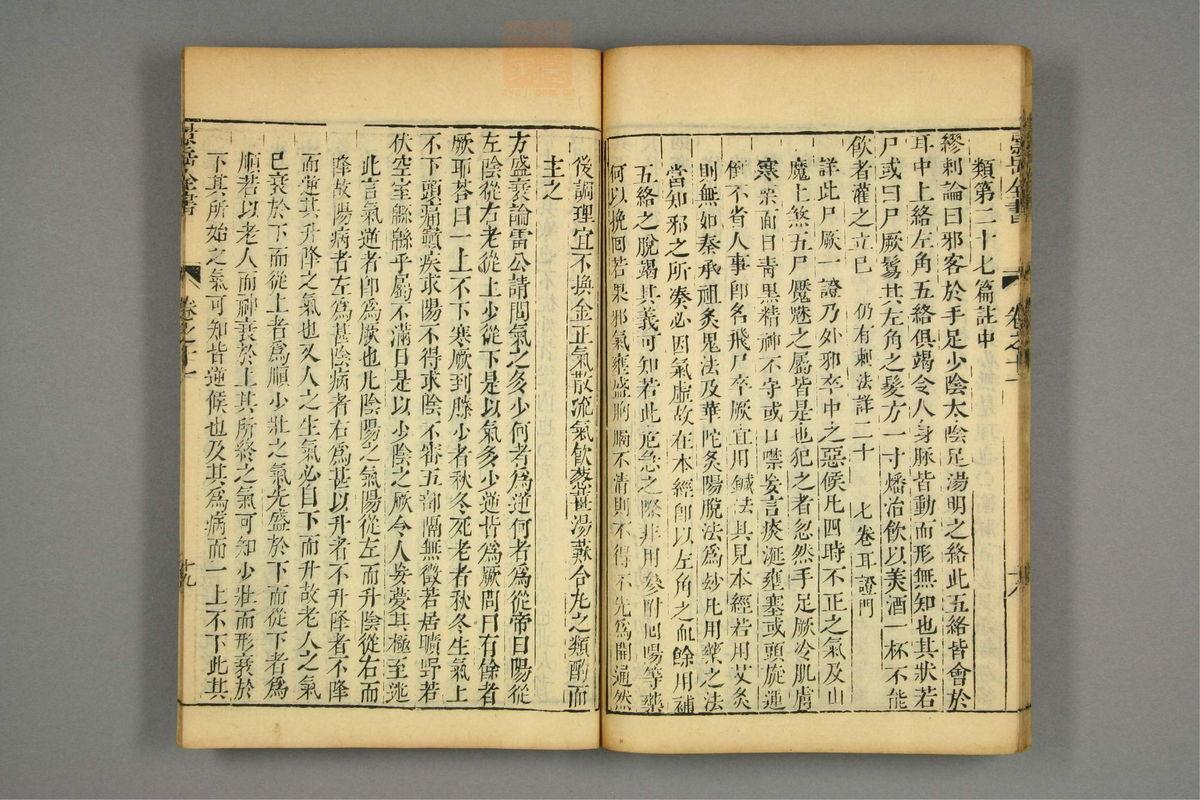 景岳全書
卷之十一
十八
類第二十七篇註中
繆刺論曰邪客於手足少陰太陰足陽明之絡此五絡皆會於
耳中上絡左角五絡俱竭令人身脉皆動而形無知也其狀若
尸或曰尸厥鬄其左角之髮方一寸燔治飲以美酒一杯不能
飲者灌之立巳 仍有刺法詳二十 七卷耳證門
詳此尸厥一證乃外邪卒中之惡候凡四時不正之氣及山
魔土煞五尸魘魅之屬皆是也犯之者忽然手足厥冷肌膚
寒栗面目青黑精神不守或口噤妄言痰涎壅塞或頭旋運
倒不省人事卽名飛尸卒厥宜用鍼法具見本經若用艾灸
則無如秦承祖灸鬼法及華陀灸陽脫法爲妙凡用藥之法
當知邪之所凑必因氣虛故在本經卽以左角之血餘用補
五絡之脫竭其義可知若此危急之際非用參附回陽等藥
何以挽回若果邪氣壅盛胸膈不清則不得不先爲開通然
後調理宜不換金正氣散流氣飲葱薑湯蘇合丸之類酌而
主之
方盛衰論雷公請問氣之多少何者爲逆何者爲從帝曰陽從
左陰從右老從上少從下是以氣多少逆皆爲厥問曰有餘者
厥耶答曰一上不下寒厥到膝少者秋冬死老者秋冬生氣上
不下頭痛巔疾求陽不得求陰不審五部隔無徵若居曠野若
伏空室緜緜乎屬不滿日是以少陰之厥令人妄夢其極至迷
此言氣逆者卽爲厥也凡陰陽之氣陽從左而升陰從右而
降故陽病者左爲甚陰病者右爲甚以升者不升降者不降
而逆其升降之氣也又人之生氣必自下而升故老人之氣
巳衰於下而從上者爲順少壯之氣先盛於下而從下者爲
順若以老人而神衰於上其所終之氣可知少壯而形衰於
下其所始之氣可知皆逆候也及其爲病而一上不下此其
景岳全書
卷之十一
十九